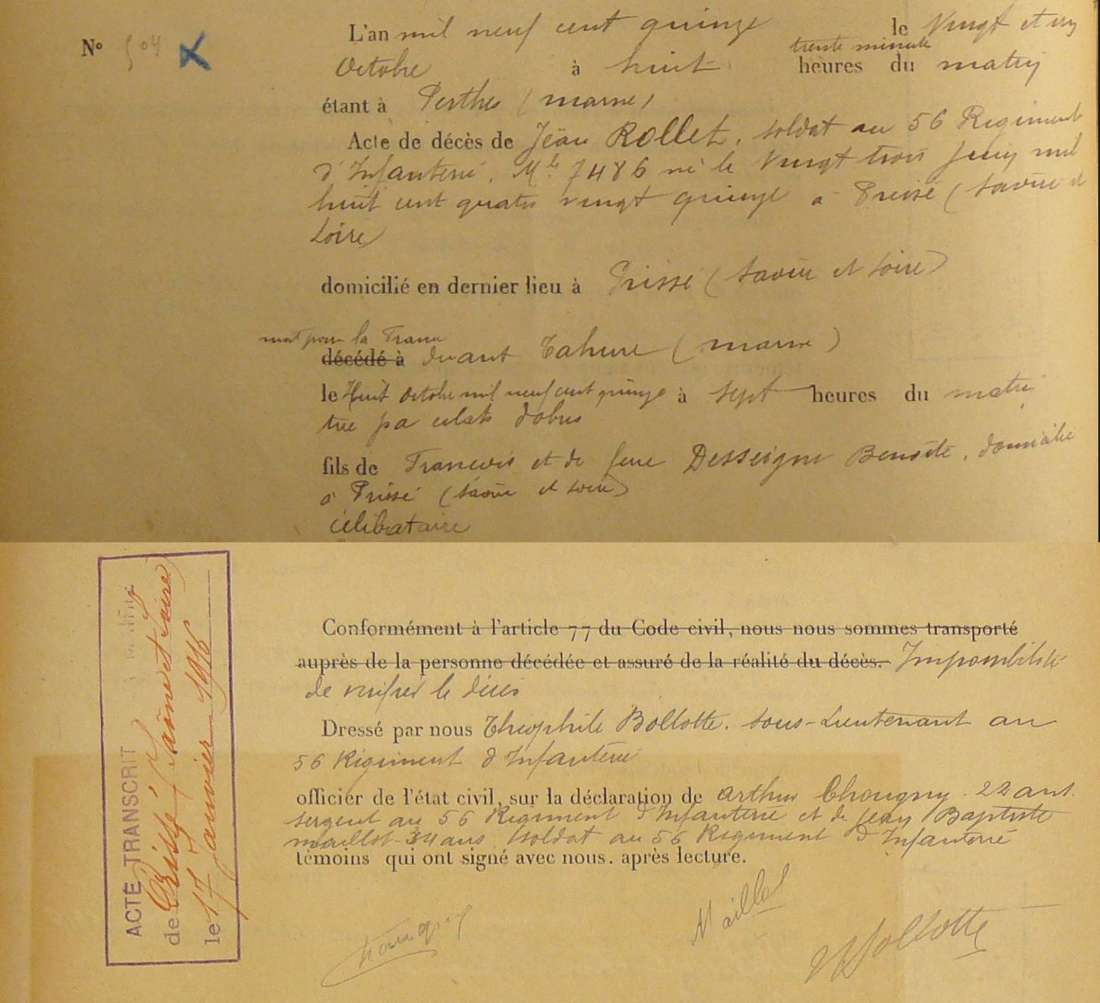 N° 504 X
L'an mil neuf cent quinze le Vingt et un
trente minute
Octobre à huit heures du matin
étant à Perthes (marne)
Acte de décès de Jean ROLLET, soldat au 56 Régiment
d'Infanterie, Mle 7486 né le Vingt trois Juin mil
huit cent quatre vingt quinze à Prissé (Saône et
Loire)
domicilié en dernier lieu à Prissé (Saône et Loire)
mort pour la France
décédé à devant Tahure (marne)
le Huit Octobre mil neuf cent quinze à sept heures du matin
tué pa eclats d'obus
fils de Francois et de feue Desseigne Benoîte, domicilié
à Prissé (Saône et Loire)
célibataire
Conformément à l'article 77 du Code civil, nous nous sommes transporté
auprès de la personne décédée et assuré de la réalité du décès. Impossibilité
de verifier le décès
Dressé par nous Théophile Bollotte, Sous-Lieutenant au
56 Régiment d'Infanterie
officier de l'état civil, sur la déclaration de Arthur Chougny 22 ans
sergent au 56 Régiment d'Infanterie et de Jean Baptiste
Maillot 34 ans soldat au 56 Régiment d'Infanterie
témoins qui ont signé avec nous. après lecture.
Chougny Maillot Bollotte
ACTE TRANSCRIT
de Prissé (Saône et Loire)
le 17 Janvier 1916